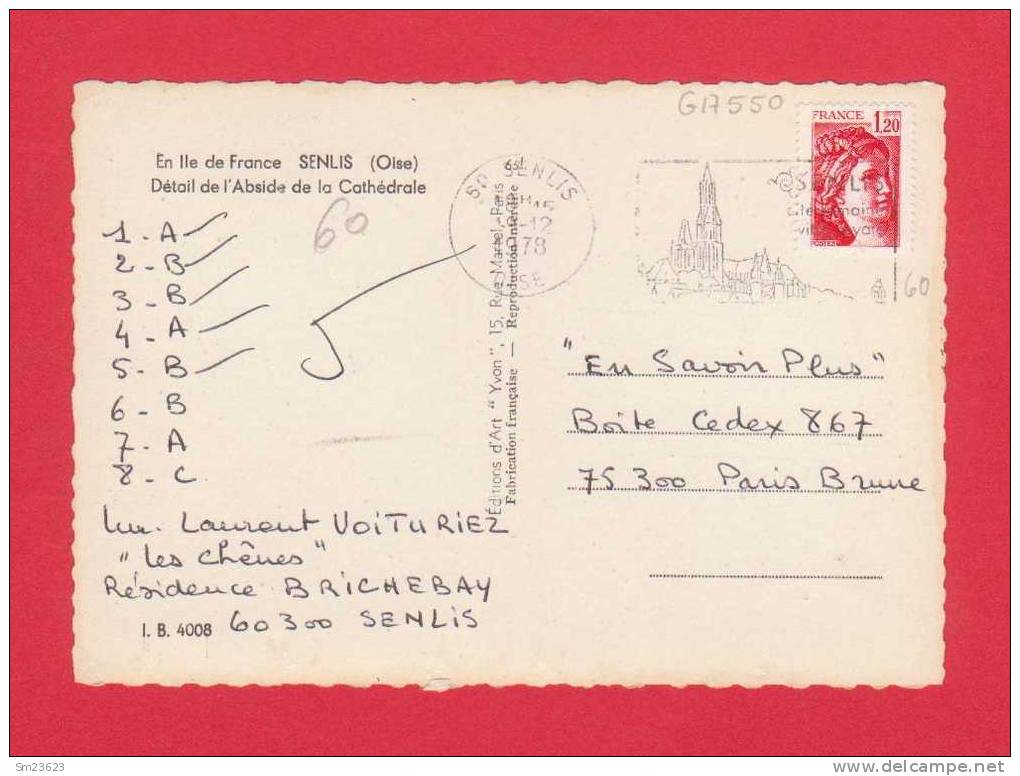 G17550
FRANCE 1,20
POSTES
En Ile de France SENLIS (Oise)
Détail de l'Abside de la Cathédrale
60
60 SENLIS
15
-12
1978
SENLIS
60
1 - A
2 - B
3 - B
4 - A
5 - B
6 - B
7 - A
8 - C
Laurent VOITURIEZ
"les chênes"
Résidence BRICHEBAY
60300 SENLIS
I. B. 4008
Éditions d'Art "Yvon", 15, Rue Martel, Paris
Fabrication française — Reproduction interdite
"En Savoir Plus"
Boîte Cedex 867
75300 Paris Brune
Sm23623
delcampe.net